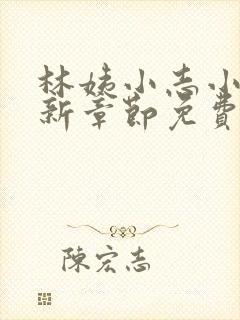 林姨小志小
新章節免費
陳宏志